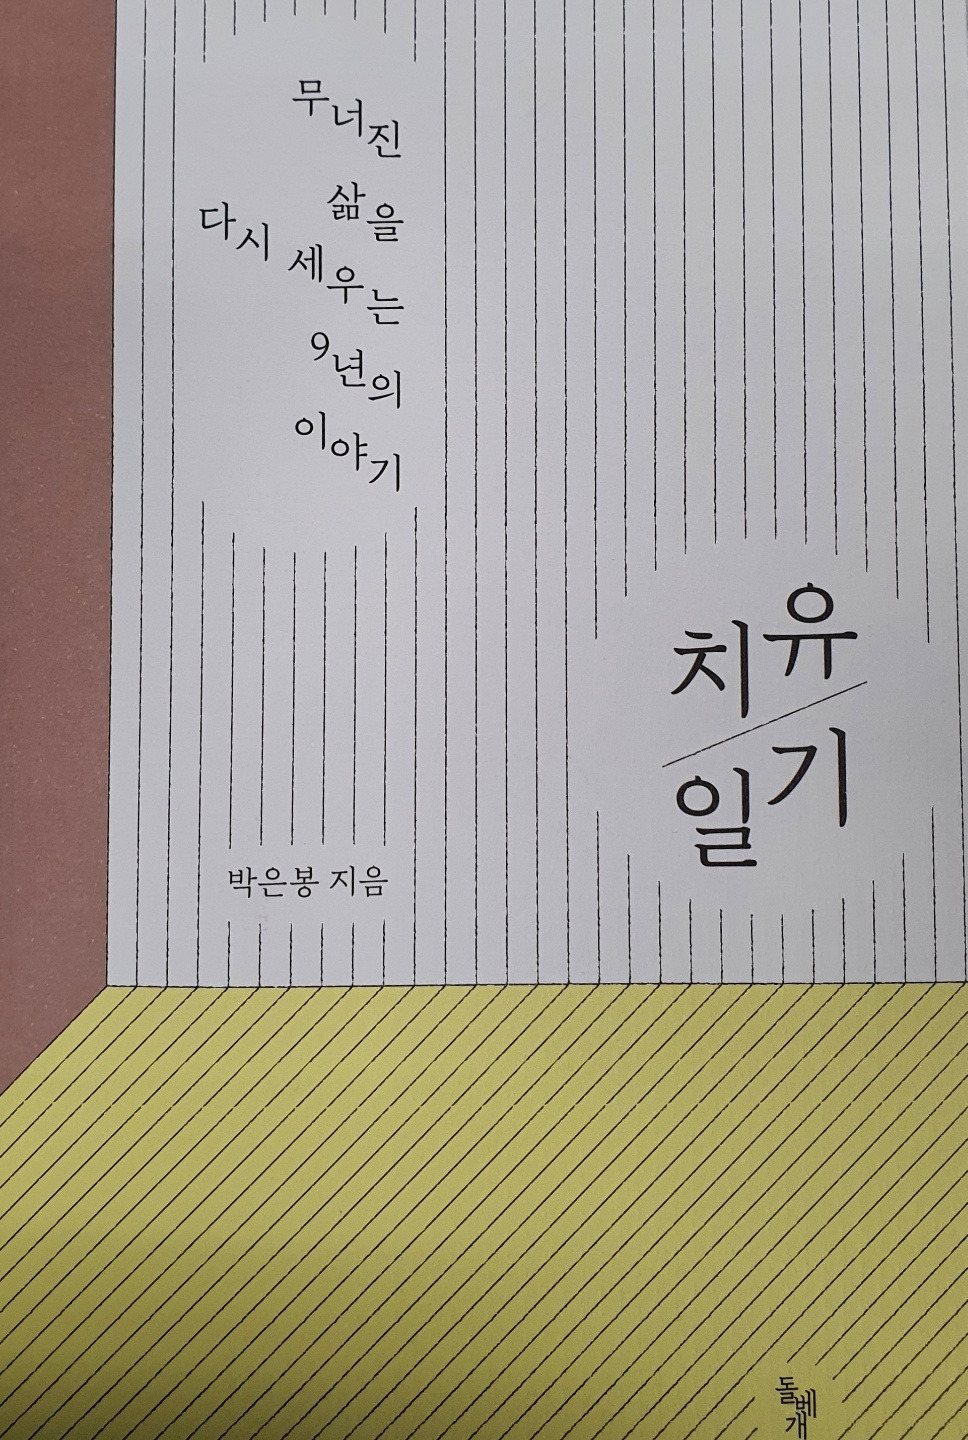 무너진
삶을
다시 세우는
9년의
이야기
치유
일기
박은봉 지음
돌베개